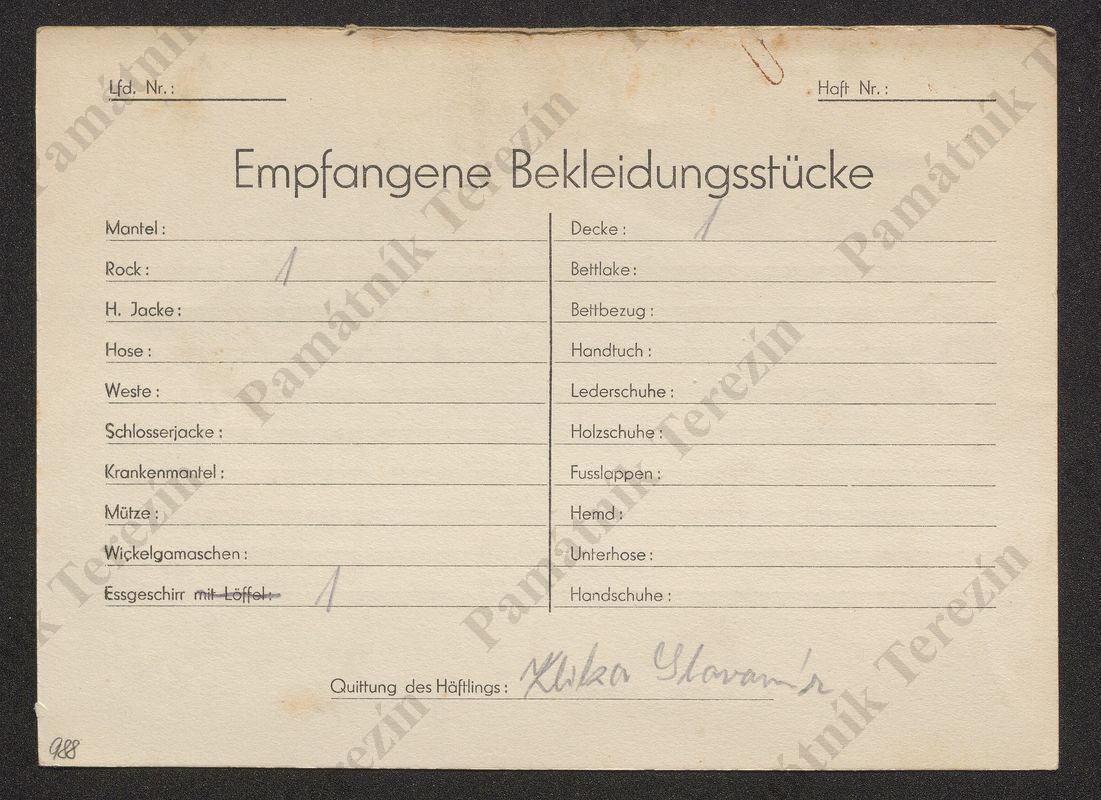 Lfd. Nr.:
Haft Nr.:
Empfangene Bekleidungsstücke
Mantel:
Rock: 1
H. Jacke:
Hose:
Weste:
Schlosserjacke:
Krankenmantel:
Mütze:
Wickelgamaschen:
Essgeschirr mit Löffel: 1
Decke: 1
Bettlake:
Bettbezug:
Handtuch:
Lederschuhe:
Holzschuhe:
Fusslappen:
Hemd:
Unterhose:
Handschuhe:
Quittung des Häftlings: Klika Slavomír
988
Památník Terezín
Památník Terezín
Památník Terezín